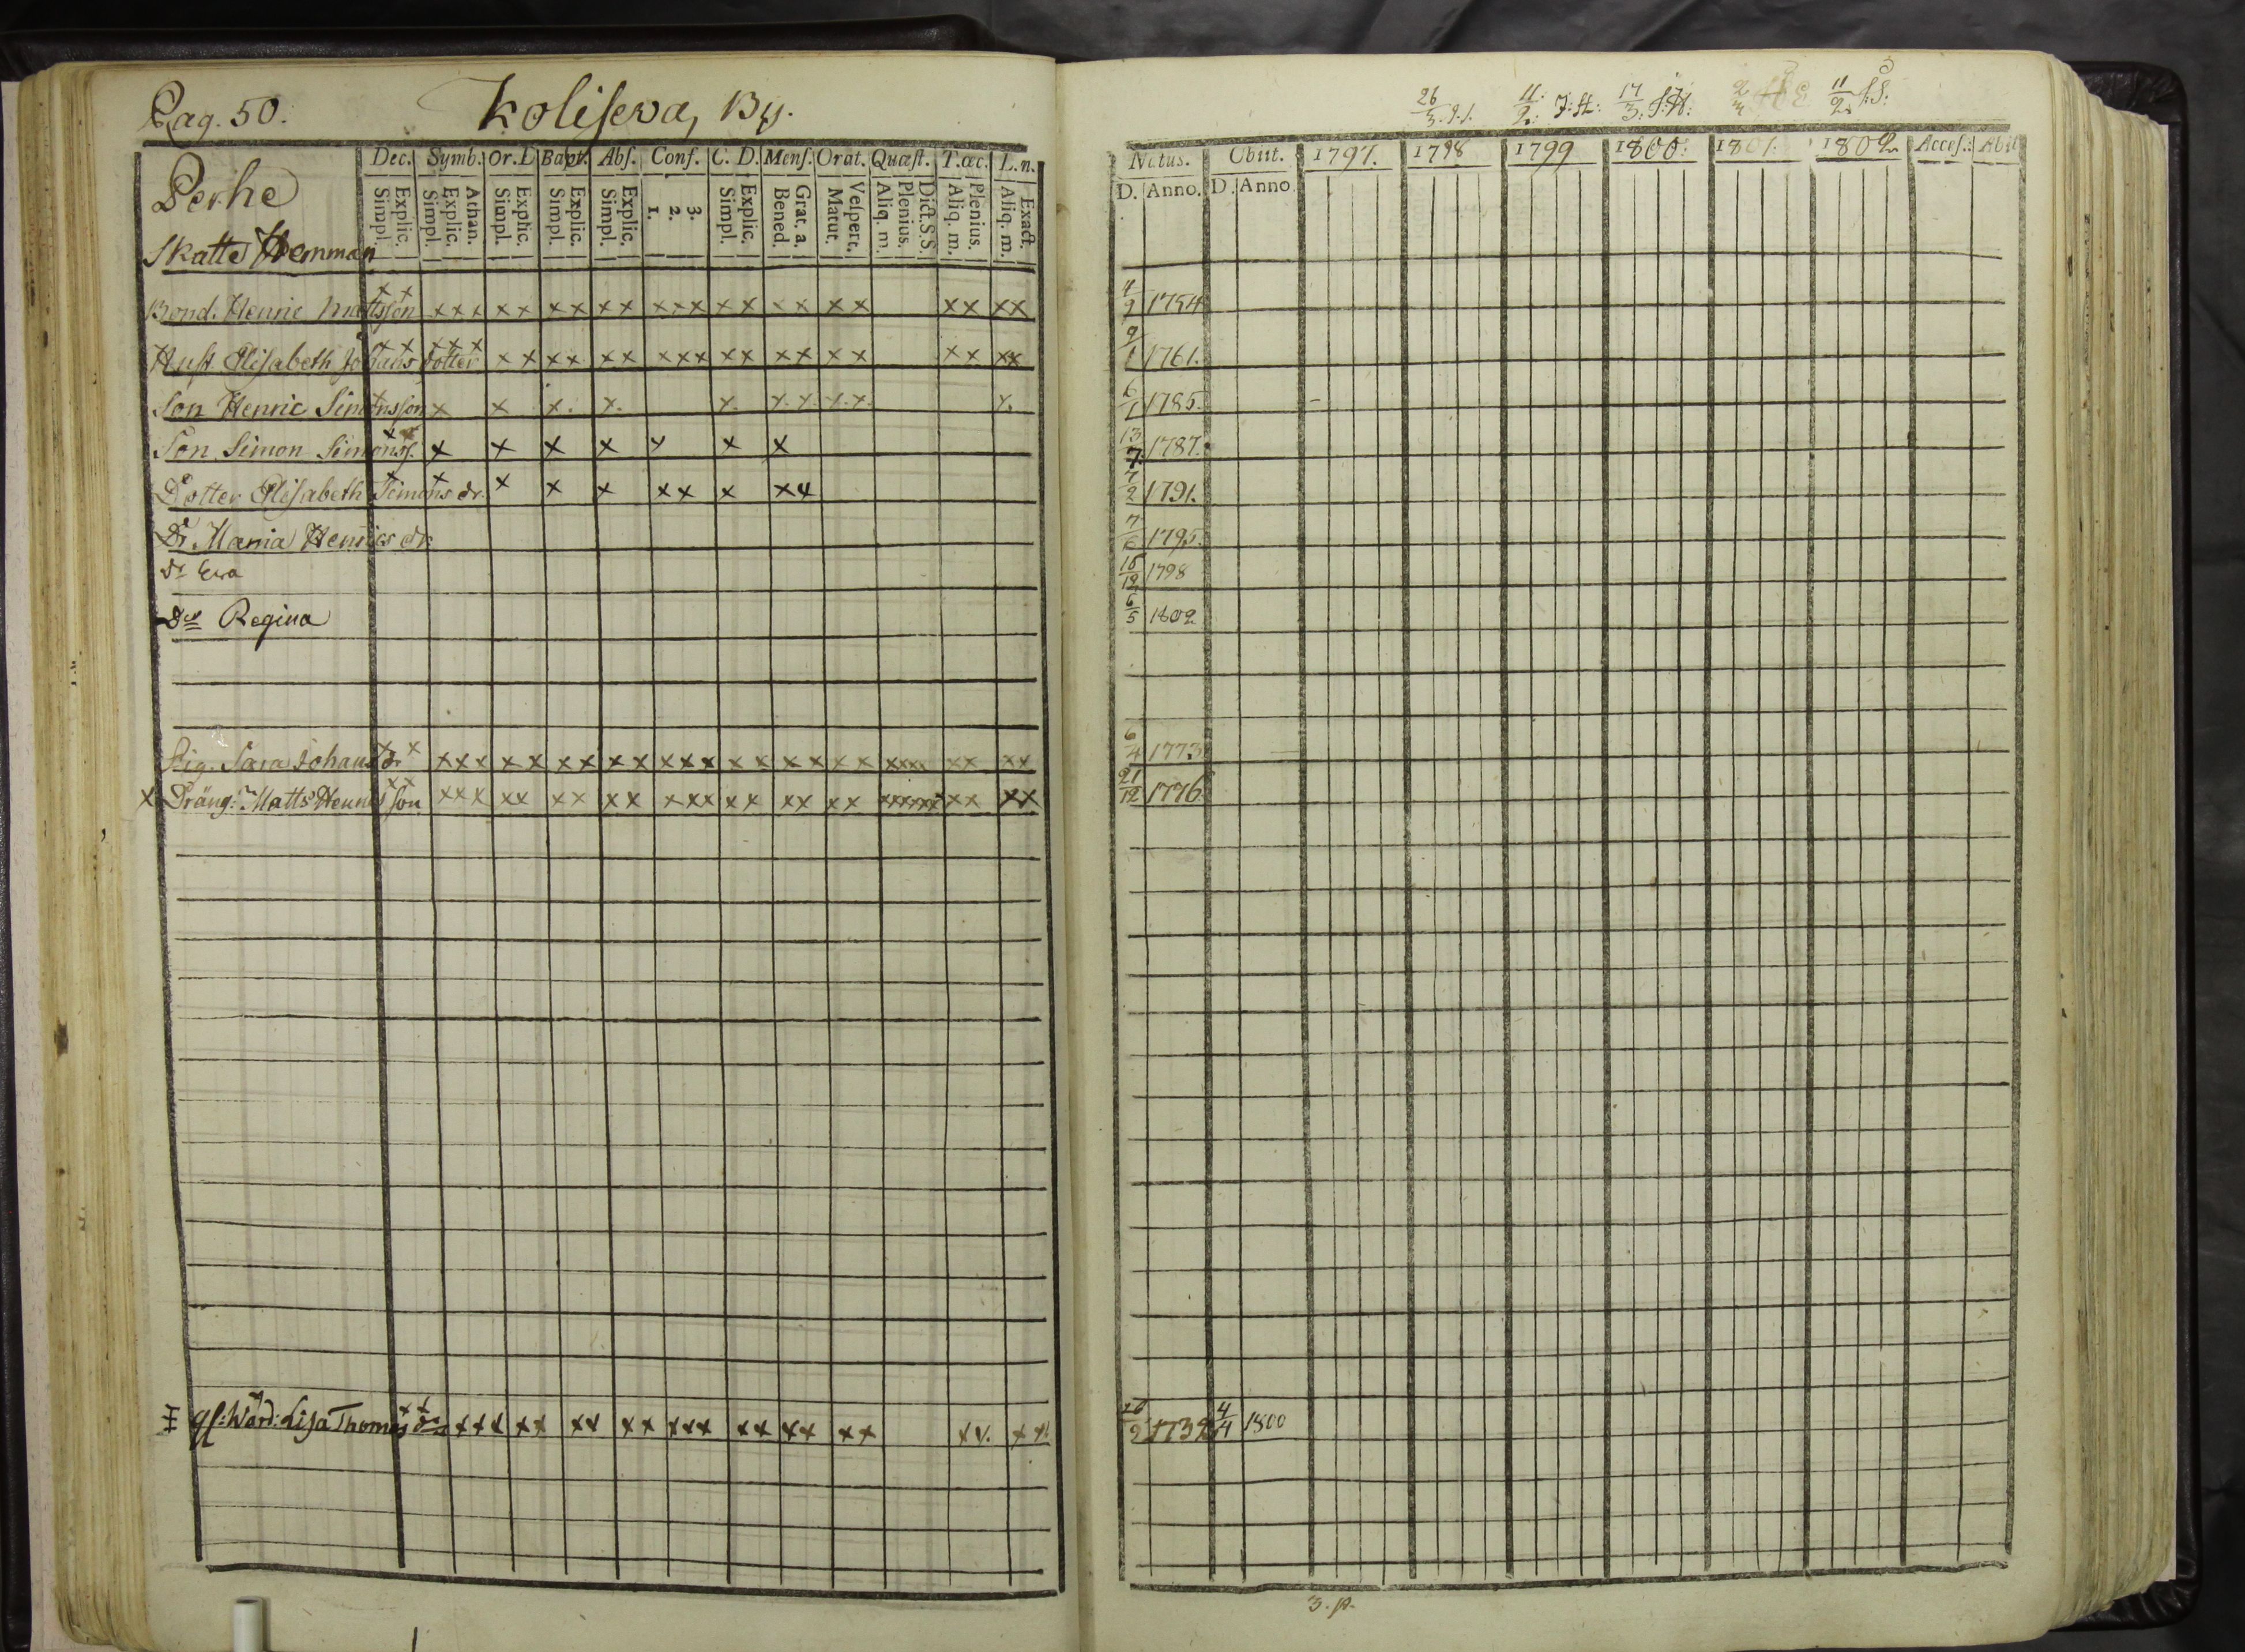 Pag. 50. Koliseva, By.
Perhe
Skatte Hemman
Dec. Symb. Or. D Bapt. Abs. Conf. C. D. Mens. Orat. Quæst. T. œc. L. n.
Simpl. Explic. Simpl. Explic. Athan. Simpl. Explic. Simpl. Explic. Simpl. Explic. 1. 2. 3. Simpl. Explic. Bened. Grat. a. Matut. Vespert. Aliq. m. Plenius. Dict. S.S. Aliq. m. Plenius. Aliq. m. Exact.
Bond. Henric Mattsson x x x x x x x x x x x x x x x x x x x x x x x x
Hust. Elisabeth Johans dotter x x x x x x x x x x x x x x x x x x x x x x x x
Son Henric Simonsson x x x. x. x. x. x. x. x. x.
Son. Simon Simonss. x x x x x x x x
Dotter Elisabeth Simons dr. x x x x x x x x x x
Dr. Maria Henrics dr.
dr Eva
Dr Regina
Pig. Sara Johans dr x x x x x x x x x x x x x x x x x x x x x xxxx x x x x
x Dräng: Matts Henricsson x x x x x x x x x x x x x x x x x x x x x xxxxxx x x x x
gl: Wärd: Lisa Thomas dr x x x x x x x x x x x x x x x x x x x x x x. x x
26/3 11/2. J: H: 17/3. J: H: 11/2
Natus. Obiit. 1797. 1798 1799 1800. 1801. 1802 Acces. Abiit
D. Anno. D. Anno.
4/9 1754
9/1 1761.
6/1 1785.
13/7 1787.
7/2 1791.
1795.
18/12 1798
6/5 1802
6/4 1773
21/12 1776
1732 4/4 1800
3. p.